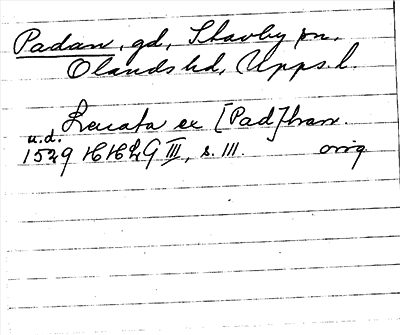 Padan, gd, Skavby sn,
Olands hd, Upps. l.
Lenata ex [Pad]han.
u.d.
1529 HH29 III, s. 111. orig